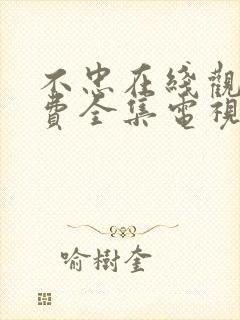 不忠在綫觀
費全集電視
喻樹奎